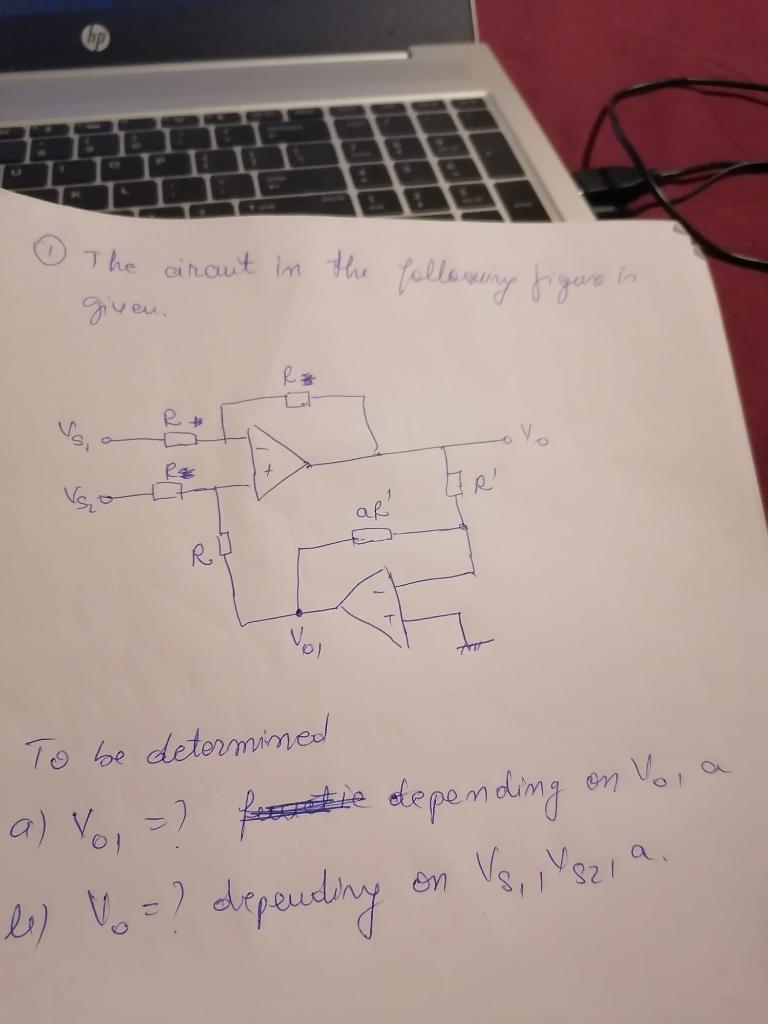 hp
① The circuit in the following figure is
given.
R
VS1
R
Vo
VS2
R
R'
aR'
R
-
+
-
+
Vo1
To be determined
a) Vo1 = ? depending on Vo, a
b) Vo = ? depending on VS1, VS2, a.